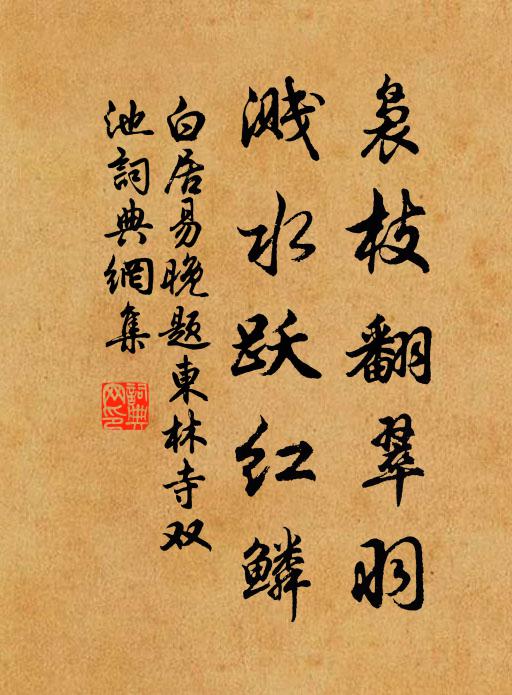 袅枝翻翠羽
溅水跃红鳞
白居易晚题東林寺双
池詞典網集
詞典网印